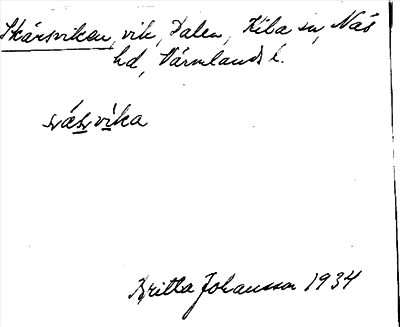 Skårsviken, vik, Dalen, Kila sn, Näs
hd, Värmlands l.
Britta Johansson 1934